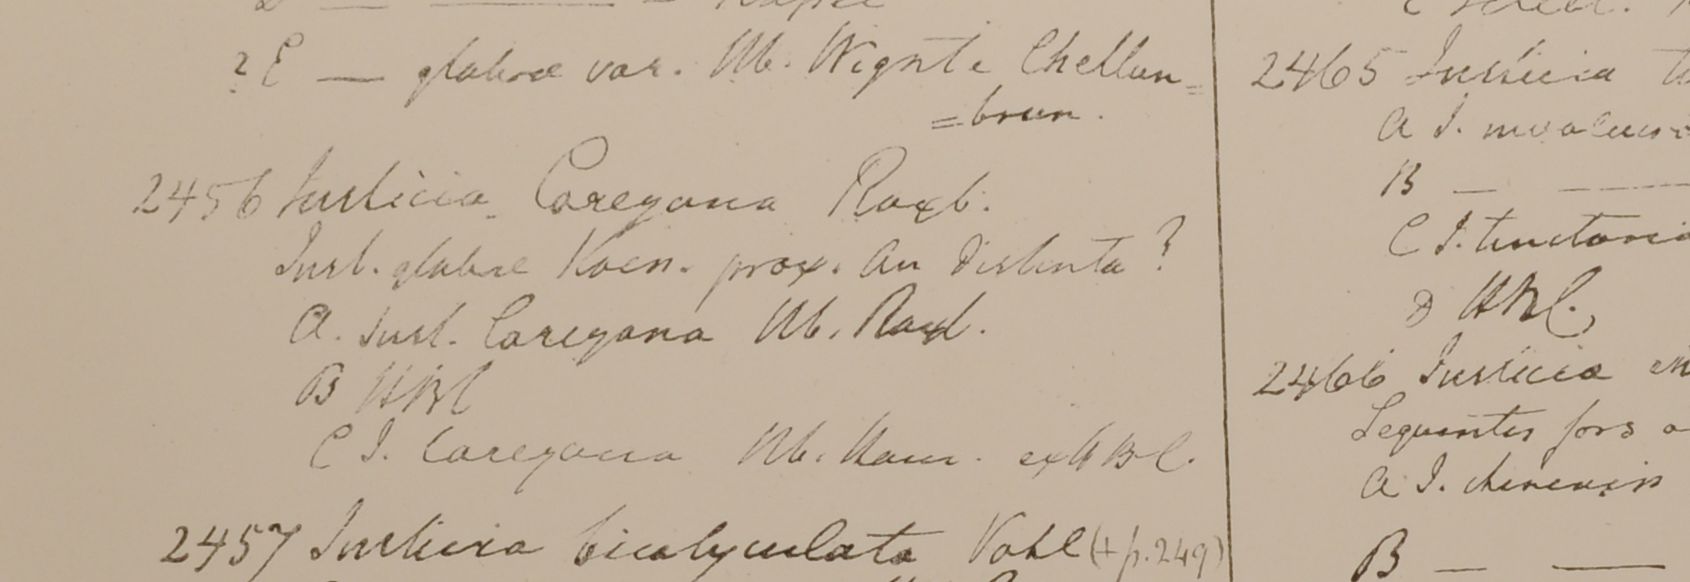 ? E — glabrae var. Hb. Wight. Chellum=
=brun.
2456 Justicia Careyana Roxb.
Just. glabrae Koen. prox. an distincta?
A. Just. Careyana Hb. Roxb.
B HBC
C J. Careyana Hb. Ham. ex HBC.
2457 Justicia bicalyculata Vahl (+ p. 249)
2465 Justicia
A J. involucr
B — —
C J. tinctoria
D HBC.
2466 Justicia
Sequentis fors
A J. chinensis
B — —